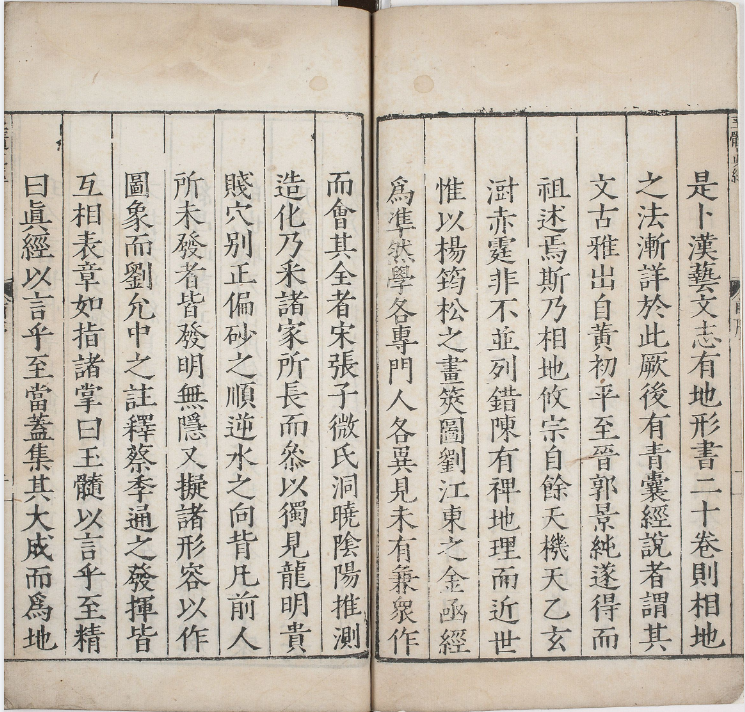 是卜漢藝文志有地形書二十卷則相地
之法漸詳於此厥後有青囊經說者謂其
文古雅出自黃初平至晉郭景純遂得而
祖述焉斯乃相地攸宗自餘天機天乙玄
厨赤霆非不並列錯陳有裨地理而近世
惟以楊筠松之畫筴圖劉江東之金函經
爲準然學各專門人各異見未有兼衆作
而會其全者宋張子微氏洞曉陰陽推測
造化乃釆諸家所長而叅以獨見龍明貴
賤穴別正偏砂之順逆水之向背凡前人
所未發者皆發明無隱又擬諸形容以作
圖象而劉允中之註釋蔡季通之發揮皆
互相表章如指諸掌曰玉髓以言乎至精
曰眞經以言乎至當蓋集其大成而爲地